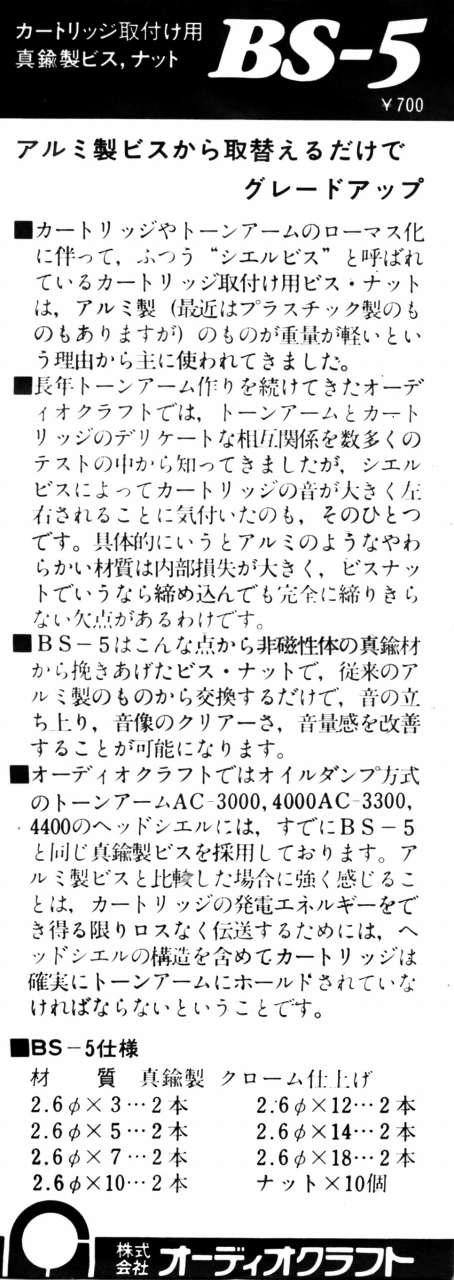 カートリッジ取付け用
真鍮製ビス,ナット
BS-5
￥700
アルミ製ビスから取替えるだけで
グレードアップ
■カートリッジやトーンアームのローマス化
に伴って，ふつう“シエルビス”と呼ばれ
ているカートリッジ取付け用ビス・ナット
は，アルミ製（最近はプラスチック製のも
のもありますが）のものが重量が軽いとい
う理由から主に使われてきました。
■長年トーンアーム作りを続けてきたオーデ
ィオクラフトでは，トーンアームとカート
リッジのデリケートな相互関係を数多くの
テストの中から知ってきましたが，シエル
ビスによってカートリッジの音が大きく左
右されることに気付いたのも，そのひとつ
です。具体的にいうとアルミのようなやわ
らかい材質は内部損失が大きく，ビスナッ
トでいうなら締め込んでも完全に締りきら
ない欠点があるわけです。
■BS－5はこんな点から非磁性体の真鍮材
から挽きあげたビス・ナットで，従来のア
ルミ製のものから交換するだけで，音の立
ち上り，音像のクリアーさ，音量感を改善
することが可能になります。
■オーディオクラフトではオイルダンプ方式
のトーンアームAC-3000,4000AC-3300,
4400のヘッドシエルには，すでにBS－5
と同じ真鍮製ビスを採用しております。ア
ルミ製ビスと比較した場合に強く感じるこ
とは，カートリッジの発電エネルギーをで
き得る限りロスなく伝送するためには，ヘ
ッドシエルの構造を含めてカートリッジは
確実にトーンアームにホールドされていな
ければならないということです。
■BS－5仕様
材　質　真鍮製　クローム仕上げ
2.6φ×3…2本　2.6φ×12…2本
2.6φ×5…2本　2.6φ×14…2本
2.6φ×7…2本　2.6φ×18…2本
2.6φ×10…2本　ナット×10個
株式会社 オーディオクラフト